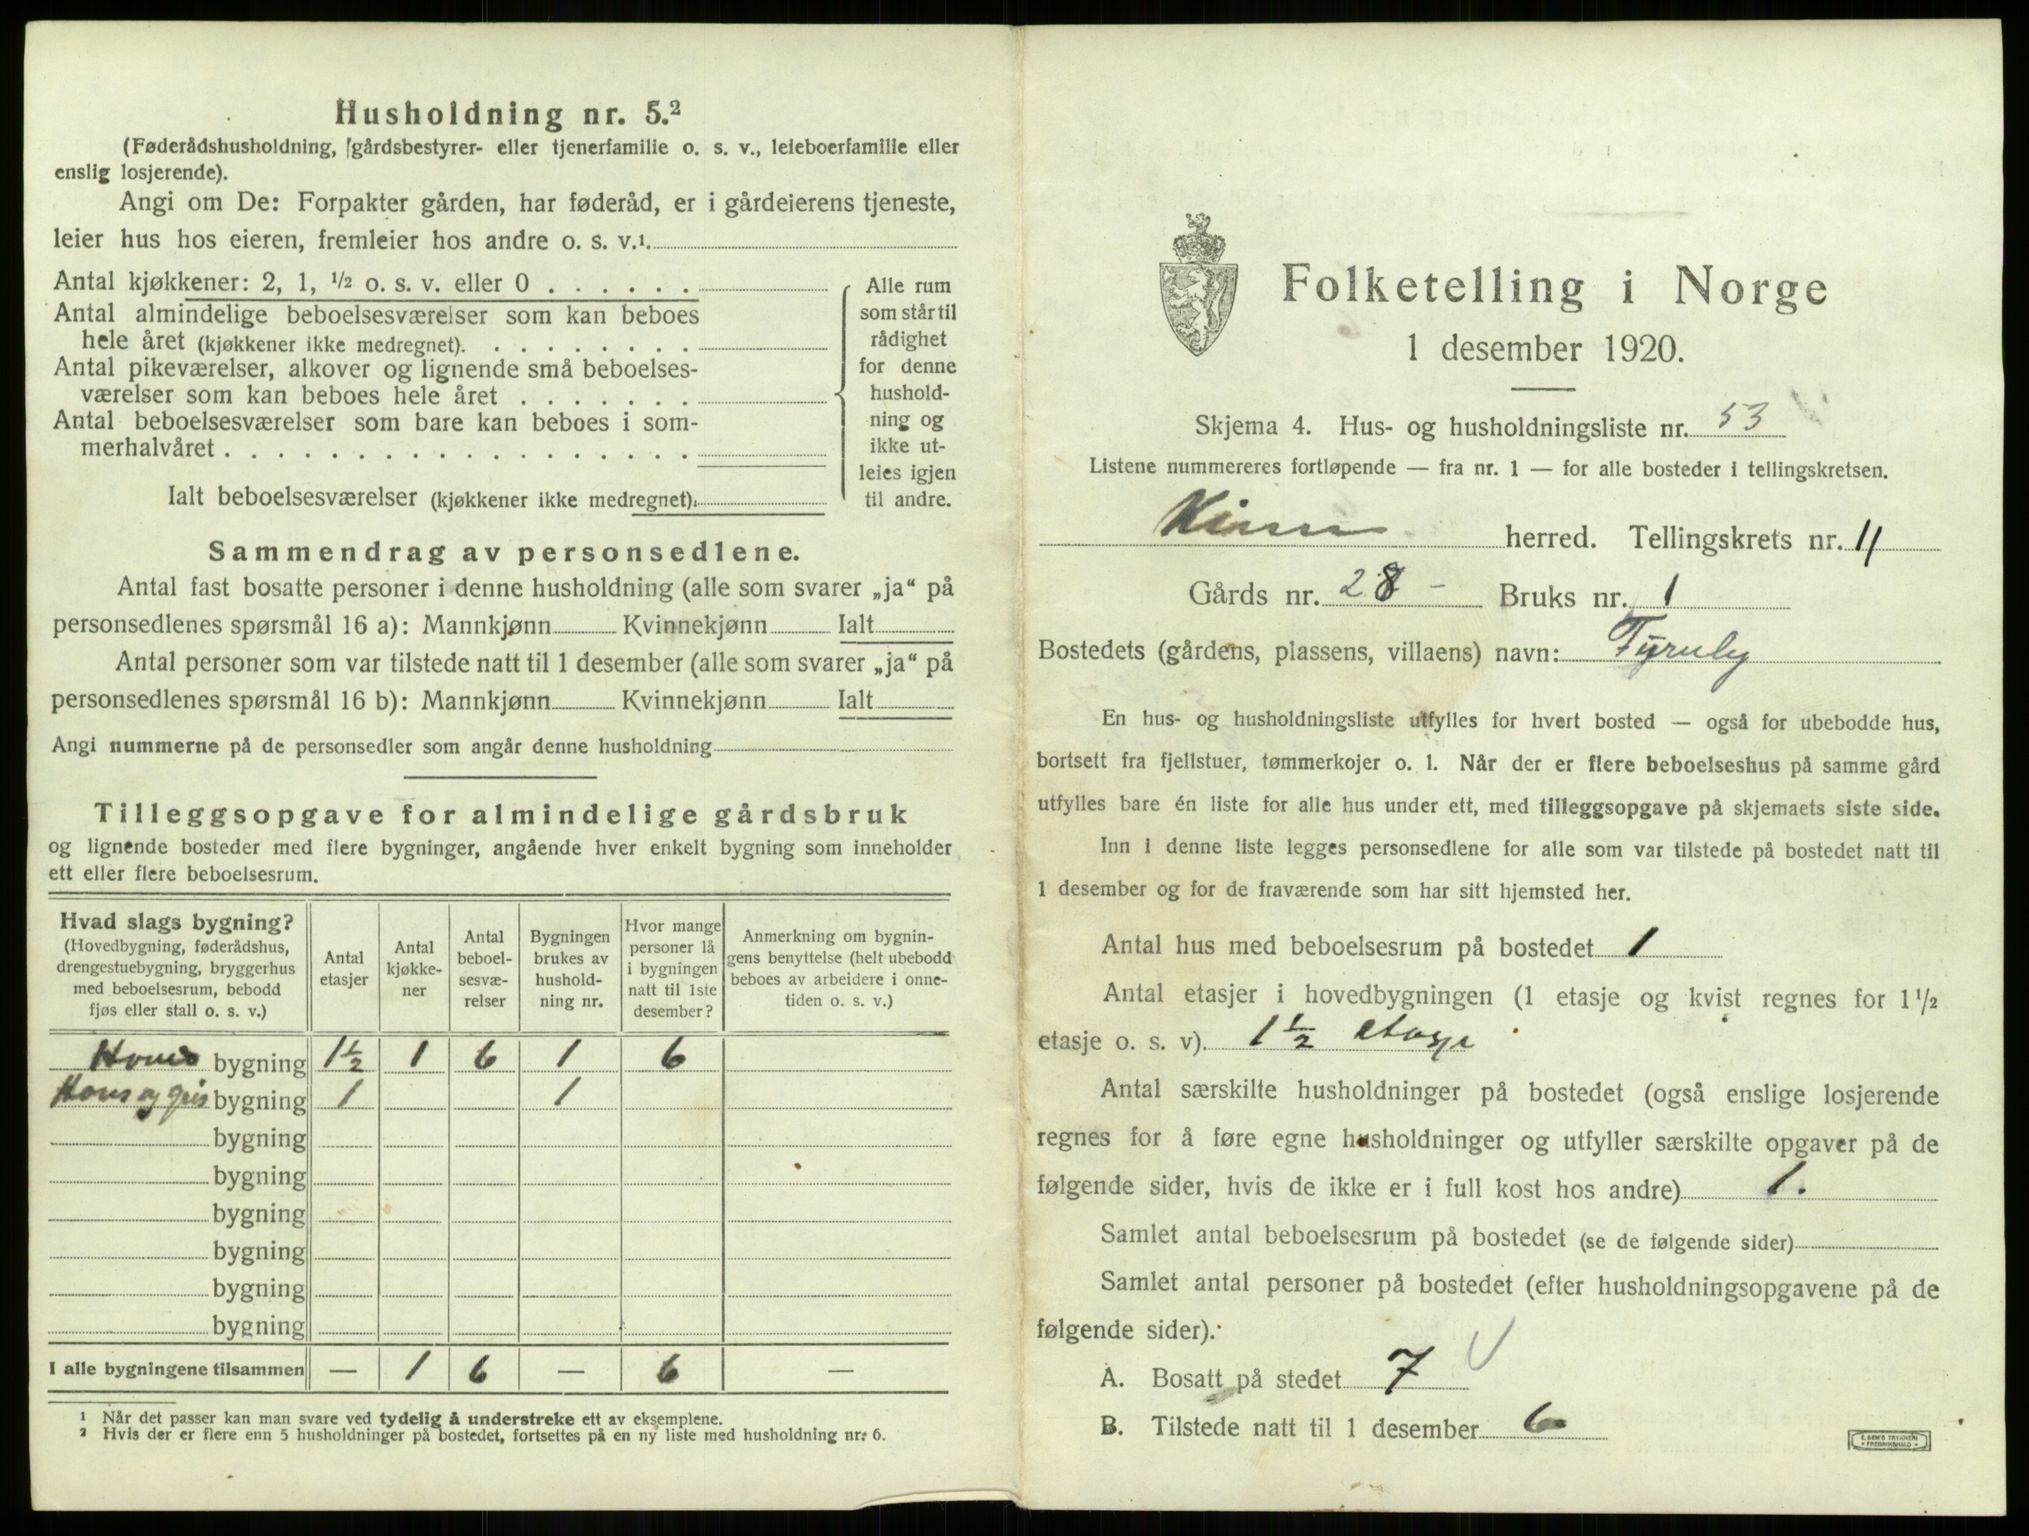 Husholdning nr. 5.²
(Føderådshusholdning, gårdsbestyrer- eller tjenerfamilie o. s. v., leieboerfamilie eller
enslig losjerende).
Angi om De: Forpakter gården, har føderåd, er i gårdeierens tjeneste,
leier hus hos eieren, fremleier hos andre o. s. v.¹
Antal kjøkkener: 2, 1, ½ o. s. v. eller 0
Antal almindelige beboelsesværelser som kan beboes
hele året (kjøkkener ikke medregnet).
Antal pikeværelser, alkover og lignende små beboelses-
værelser som kan beboes hele året
Antal beboelsesværelser som bare kan beboes i som-
merhalvåret
Ialt beboelsesværelser (kjøkkener ikke medregnet).
Alle rum
som står til
rådighet
for denne
hushold-
ning og
ikke ut-
leies igjen
til andre.
Sammendrag av personsedlene.
Antal fast bosatte personer i denne husholdning (alle som svarer „ja“ på
personsedlenes spørsmål 16 a): Mannkjønn Kvinnekjønn Ialt
Antal personer som var tilstede natt til 1 desember (alle som svarer „ja“ på
personsedlenes spørsmål 16 b): Mannkjønn Kvinnekjønn Ialt
Angi nummerne på de personsedler som angår denne husholdning
Tilleggsopgave for almindelige gårdsbruk
og lignende bosteder med flere bygninger, angående hver enkelt bygning som inneholder
ett eller flere beboelsesrum.
Hvad slags bygning?
(Hovedbygning, føderådshus,
drengestuebygning, bryggerhus
med beboelsesrum, bebodd
fjøs eller stall o. s. v.)
Antal
etasjer
Antal
kjøkke-
ner
Antal
beboel-
sesvæ-
relser
Bygningen
brukes av
hushold-
ning nr.
Hvor mange
personer lå
i bygningen
natt til 1ste
desember?
Anmerkning om bygnin-
gens benyttelse (helt ubebodd
beboes av arbeidere i onne-
tiden o. s. v.)
bygning 1½ 1 6 1 6
bygning 1 1
bygning
bygning
bygning
bygning
bygning
bygning
I alle bygningene tilsammen — 1 6 — 6 —
¹ Når det passer kan man svare ved tydelig å understreke ett av eksemplene.
² Hvis der er flere enn 5 husholdninger på bostedet, fortsettes på en ny liste med husholdning nr. 6.
Folketelling i Norge
1 desember 1920.
Skjema 4. Hus- og husholdningsliste nr. 53
Listene nummereres fortløpende — fra nr. 1 — for alle bosteder i tellingskretsen.
Kinn herred. Tellingskrets nr. 11
Gårds nr. 28 - Bruks nr. 1
Bostedets (gårdens, plassens, villaens) navn:
En hus- og husholdningsliste utfylles for hvert bosted — også for ubebodde hus,
bortsett fra fjellstuer, tømmerkojer o. l. Når der er flere beboelseshus på samme gård
utfylles bare én liste for alle hus under ett, med tilleggsopgave på skjemaets siste side.
Inn i denne liste legges personsedlene for alle som var tilstede på bostedet natt til
1 desember og for de fraværende som har sitt hjemsted her.
Antal hus med beboelsesrum på bostedet 1
Antal etasjer i hovedbygningen (1 etasje og kvist regnes for 1½
etasje o. s. v). 1½ etasje
Antal særskilte husholdninger på bostedet (også enslige losjerende
regnes for å føre egne husholdninger og utfyller særskilte opgaver på de
følgende sider, hvis de ikke er i full kost hos andre) 1.
Samlet antal beboelsesrum på bostedet (se de følgende sider)
Samlet antal personer på bostedet (efter husholdningsopgavene på de
følgende sider).
A. Bosatt på stedet 7
B. Tilstede natt til 1 desember 6